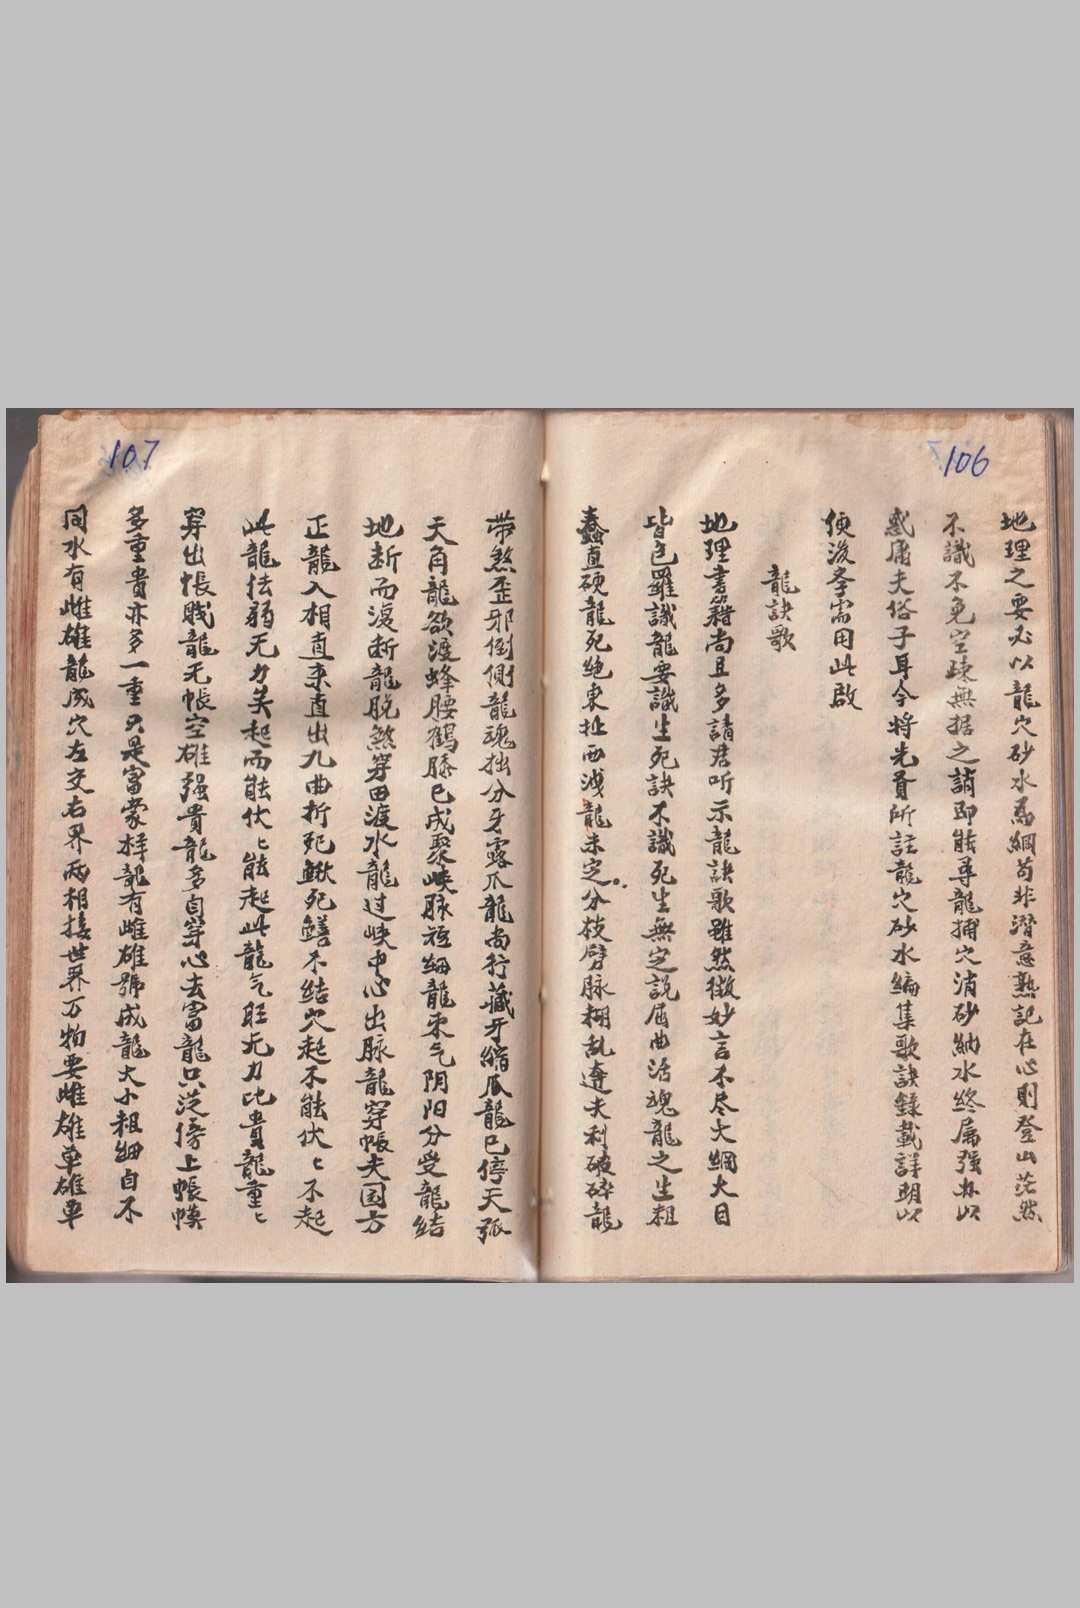 106
地理之要必以龍穴砂水為綱苟非潛意熟記在心則登山茫然
不識不免空疎無据之誚即能尋龍捕穴消砂納水終属强為以
惑庸夫俗子耳今将先賢所註龍穴砂水編集歌訣錄載詳明以
便後孝需用此啟
龍訣歌
地理書籍尚且多請君听示龍訣歌雖然微妙言不尽大綱大目
皆包羅識龍要識生死訣不識死生無定說屈曲活魂龍之生粗
蠢直硬龍死绝東扯西洩龍未定分枝劈脉糊乱遶夫利破碎龍
107
带煞歪邪倒側龍魂拙分牙露爪龍尚行藏牙縮爪龍已停天弧
天角龍欲渡蜂腰鶴膝已成聚峡脉短細龍束气阴阳分受龍结
地断而復断龍脱煞穿田渡水龍过峡中心出脉龍穿帳夫国方
正龍入相直来直出九曲折死鰍死鳝不结穴起不能伏ヒ不起
此龍怯弱无力矣起而能伏ヒ能起此龍气旺无力比貴龍重ヒ
穿出帳賤龍无帳空雄强貴龍多自穿心去富龍只従傍上帳幙
多重貴亦多一重只是富豪样龍有雌雄號成龍大小粗細自不
同水有雌雄龍成穴左交右界兩相接世界万物要雌雄单雄单